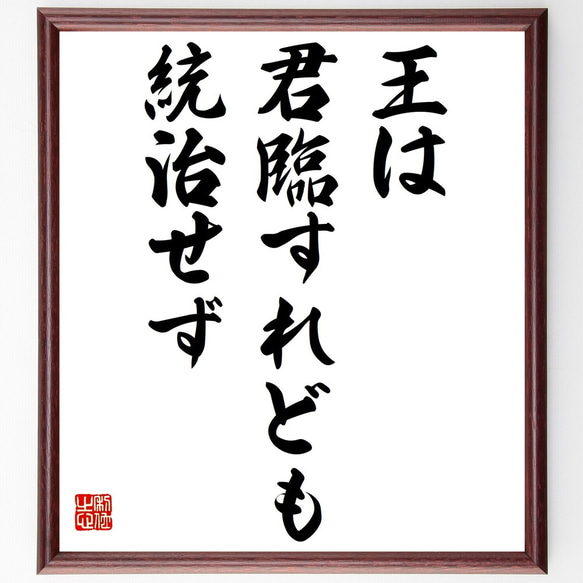 王は
君臨すれども
統治せず